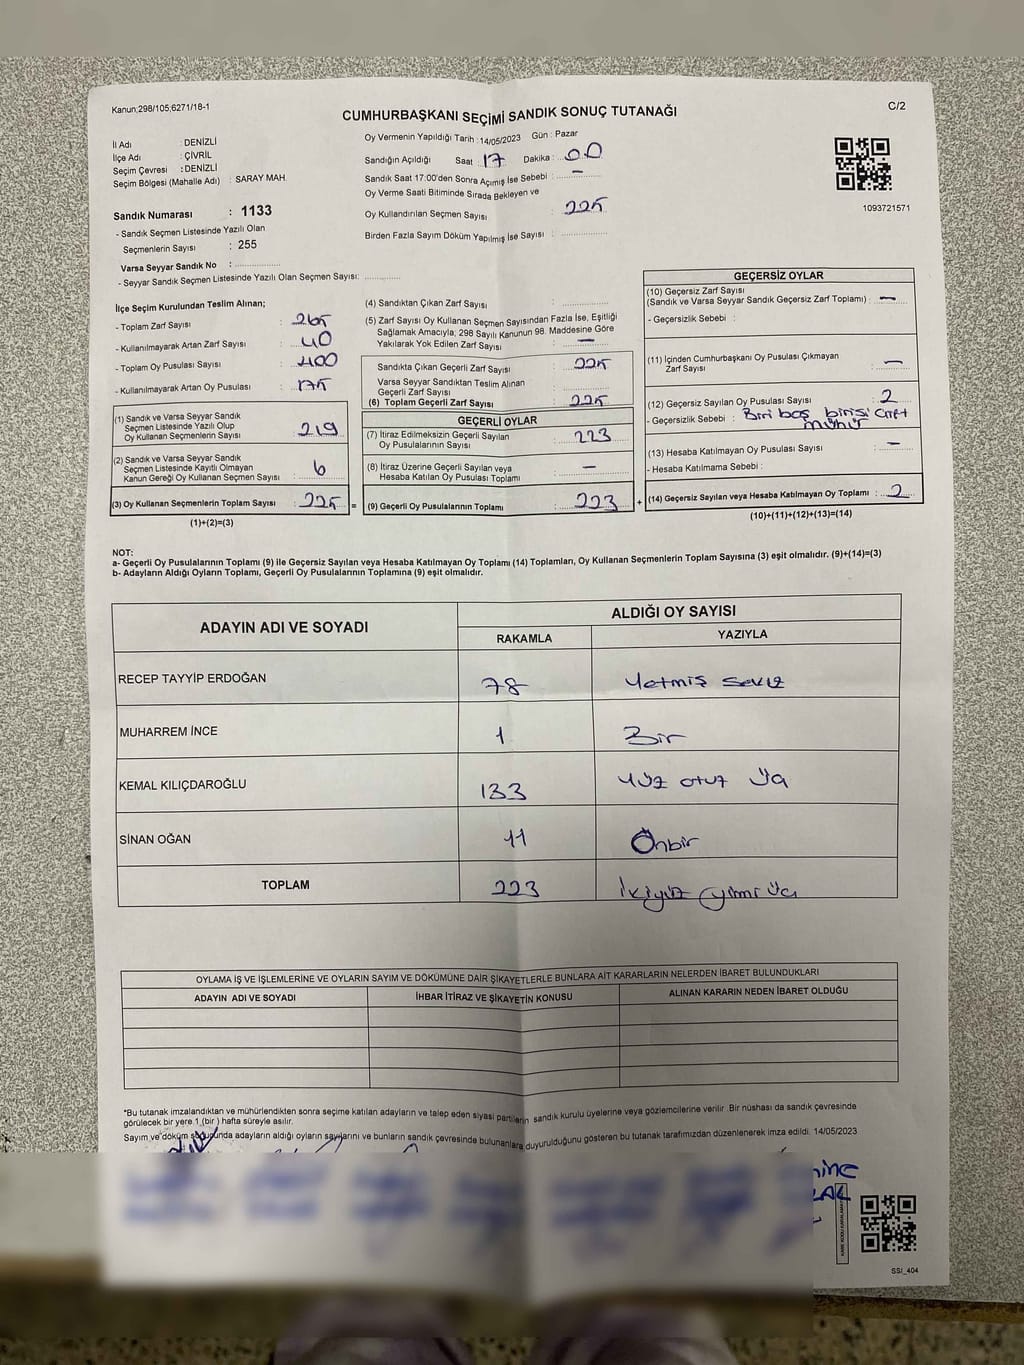 Kanun;298/105;6271/18-1
CUMHURBAŞKANI SEÇİMİ SANDIK SONUÇ TUTANAĞI
C/2
İl Adı : DENİZLİ
İlçe Adı : ÇİVRİL
Seçim Çevresi : DENİZLİ
Seçim Bölgesi (Mahalle Adı) : SARAY MAH.
Sandık Numarası : 1133
- Sandık Seçmen Listesinde Yazılı Olan
Seçmenlerin Sayısı : 255
Varsa Seyyar Sandık No :
- Seyyar Sandık Seçmen Listesinde Yazılı Olan Seçmen Sayısı:
Oy Vermenin Yapıldığı Tarih : 14/05/2023 Gün : Pazar
Sandığın Açıldığı Saat : 17 Dakika : 00
Sandık Saat 17:00'den Sonra Açılmış İse Sebebi : —
Oy Verme Saati Bitiminde Sırada Bekleyen ve
Oy Kullandırılan Seçmen Sayısı : 225
Birden Fazla Sayım Döküm Yapılmış İse Sayısı :
1093721571
İlçe Seçim Kurulundan Teslim Alınan;
- Toplam Zarf Sayısı : 265
- Kullanılmayarak Artan Zarf Sayısı : 40
- Toplam Oy Pusulası Sayısı : 400
- Kullanılmayarak Artan Oy Pusulası : 175
(1) Sandık ve Varsa Seyyar Sandık
Seçmen Listesinde Yazılı Olup
Oy Kullanan Seçmenlerin Sayısı : 219
(2) Sandık ve Varsa Seyyar Sandık
Seçmen Listesinde Kayıtlı Olmayan
Kanun Gereği Oy Kullanan Seçmen Sayısı : 6
(3) Oy Kullanan Seçmenlerin Toplam Sayısı : 225 =
(1)+(2)=(3)
(4) Sandıktan Çıkan Zarf Sayısı :
(5) Zarf Sayısı Oy Kullanan Seçmen Sayısından Fazla İse, Eşitliği
Sağlamak Amacıyla; 298 Sayılı Kanunun 98. Maddesine Göre
Yakılarak Yok Edilen Zarf Sayısı : —
Sandıkta Çıkan Geçerli Zarf Sayısı : 225
Varsa Seyyar Sandıktan Teslim Alınan
Geçerli Zarf Sayısı :
(6) Toplam Geçerli Zarf Sayısı : 225
GEÇERLİ OYLAR
(7) İtiraz Edilmeksizin Geçerli Sayılan
Oy Pusulalarının Sayısı : 223
(8) İtiraz Üzerine Geçerli Sayılan veya
Hesaba Katılan Oy Pusulası Toplamı : —
(9) Geçerli Oy Pusulalarının Toplamı : 223 +
GEÇERSİZ OYLAR
(10) Geçersiz Zarf Sayısı
(Sandık ve Varsa Seyyar Sandık Geçersiz Zarf Toplamı) : —
- Geçersizlik Sebebi :
(11) İçinden Cumhurbaşkanı Oy Pusulası Çıkmayan
Zarf Sayısı : —
(12) Geçersiz Sayılan Oy Pusulası Sayısı : 2
- Geçersizlik Sebebi : Biri boş birisi çift
mühü
(13) Hesaba Katılmayan Oy Pusulası Sayısı : —
- Hesaba Katılmama Sebebi :
(14) Geçersiz Sayılan veya Hesaba Katılmayan Oy Toplamı : 2
(10)+(11)+(12)+(13)=(14)
NOT:
a- Geçerli Oy Pusulalarının Toplamı (9) ile Geçersiz Sayılan veya Hesaba Katılmayan Oy Toplamı (14) Toplamları, Oy Kullanan Seçmenlerin Toplam Sayısına (3) eşit olmalıdır. (9)+(14)=(3)
b- Adayların Aldığı Oyların Toplamı, Geçerli Oy Pusulalarının Toplamına (9) eşit olmalıdır.
ADAYIN ADI VE SOYADI
ALDIĞI OY SAYISI
RAKAMLA YAZIYLA
RECEP TAYYİP ERDOĞAN 78 Yetmiş sekiz
MUHARREM İNCE 1 Bir
KEMAL KILIÇDAROĞLU 133 Yüz otuz Üç
SİNAN OĞAN 11 Onbir
TOPLAM 223 İkiyüz yirmi Üç
OYLAMA İŞ VE İŞLEMLERİNE VE OYLARIN SAYIM VE DÖKÜMÜNE DAİR ŞİKAYETLERLE BUNLARA AİT KARARLARIN NELERDEN İBARET BULUNDUKLARI
ADAYIN ADI VE SOYADI İHBAR İTİRAZ VE ŞİKAYETİN KONUSU ALINAN KARARIN NEDEN İBARET OLDUĞU
*Bu tutanak imzalandıktan ve mühürlendikten sonra seçime katılan adayların ve talep eden siyasi partilerin sandık kurulu üyelerine veya gözlemcilerine verilir. Bir nüshası da sandık çevresinde
görülecek bir yere 1 (bir) hafta süreyle asılır.
Sayım ve döküm sonucunda adayların aldığı oyların sayılarını ve bunların sandık çevresinde bulunanlara duyurulduğunu gösteren bu tutanak tarafımızdan düzenlenerek imza edildi. 14/05/2023
SSI_404